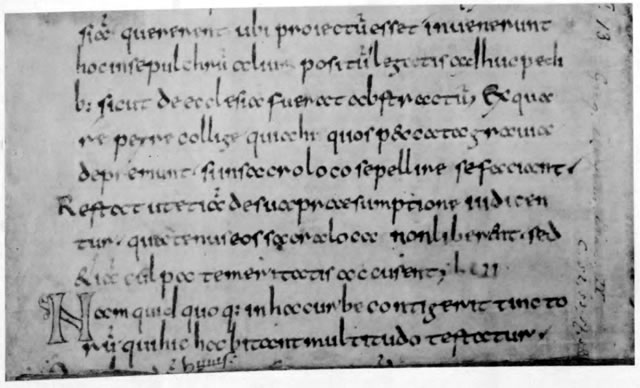 quererent ubi proiectū esset invenerunt
hoc in sepulchrū aliud positū legatis adhuc pedi
b: sicut de ecclesia fuerat abstractū, Ex qua
re petre collige quia hi quos p&cata gravia
depremunt. si in sacro loco sepelire se faciant.
Restat ut etiā de sua praesumptione iudicen
tur. quatenus eos sacra loca non liberent. sed
&iā culpa temeritatis accusent, LVI
Nam quid quoq: in hac urbe contigerit tincto
rū qui hic habitant multitudo testatur.
huius.